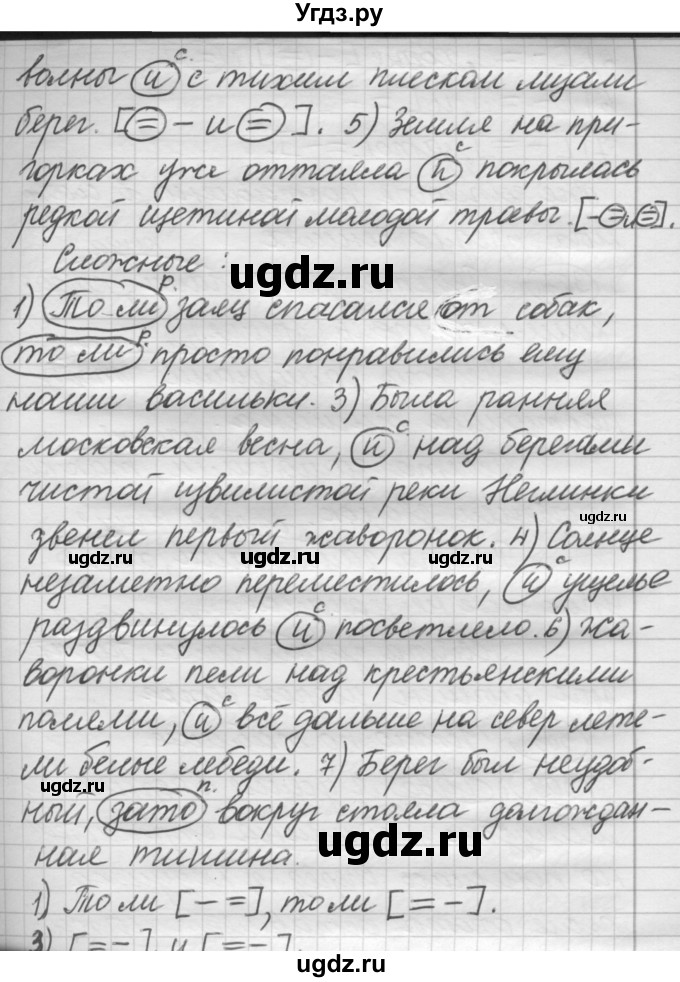 Угдз.ру
волны и с с тихим плеском лизали
берег. [= – и =]. 5) Земля на при-
горках уже оттаяла и с покрылась
редкой щетиной молодой травы. [– = и =].
Сложные:
ugdz.ru
1) То ли р. заяц спасался от собак,
то ли р. просто понравились ему
наши васильки. 3) Была ранняя
московская весна, и с над берегами
чистой извилистой реки Неглинки
ugdz.ru
звенел первый жаворонок. 4) Солнце
ugdz.ru ugdz.ru ugdz.ru
незаметно переместилось, и с ущелье
раздвинулось и с посветлело. 6) Жа-
воронки пели над крестьянскими
полями, и с всё дальше на север лете-
ли белые лебеди. 7) Берег был неудоб-
ный, зато п. вокруг стояла долгождан-
ugdz.ru ugdz.ru
ная тишина.
1) То ли [– =], то ли [= –].
3) [= –], и [= –].
ugdz.ru